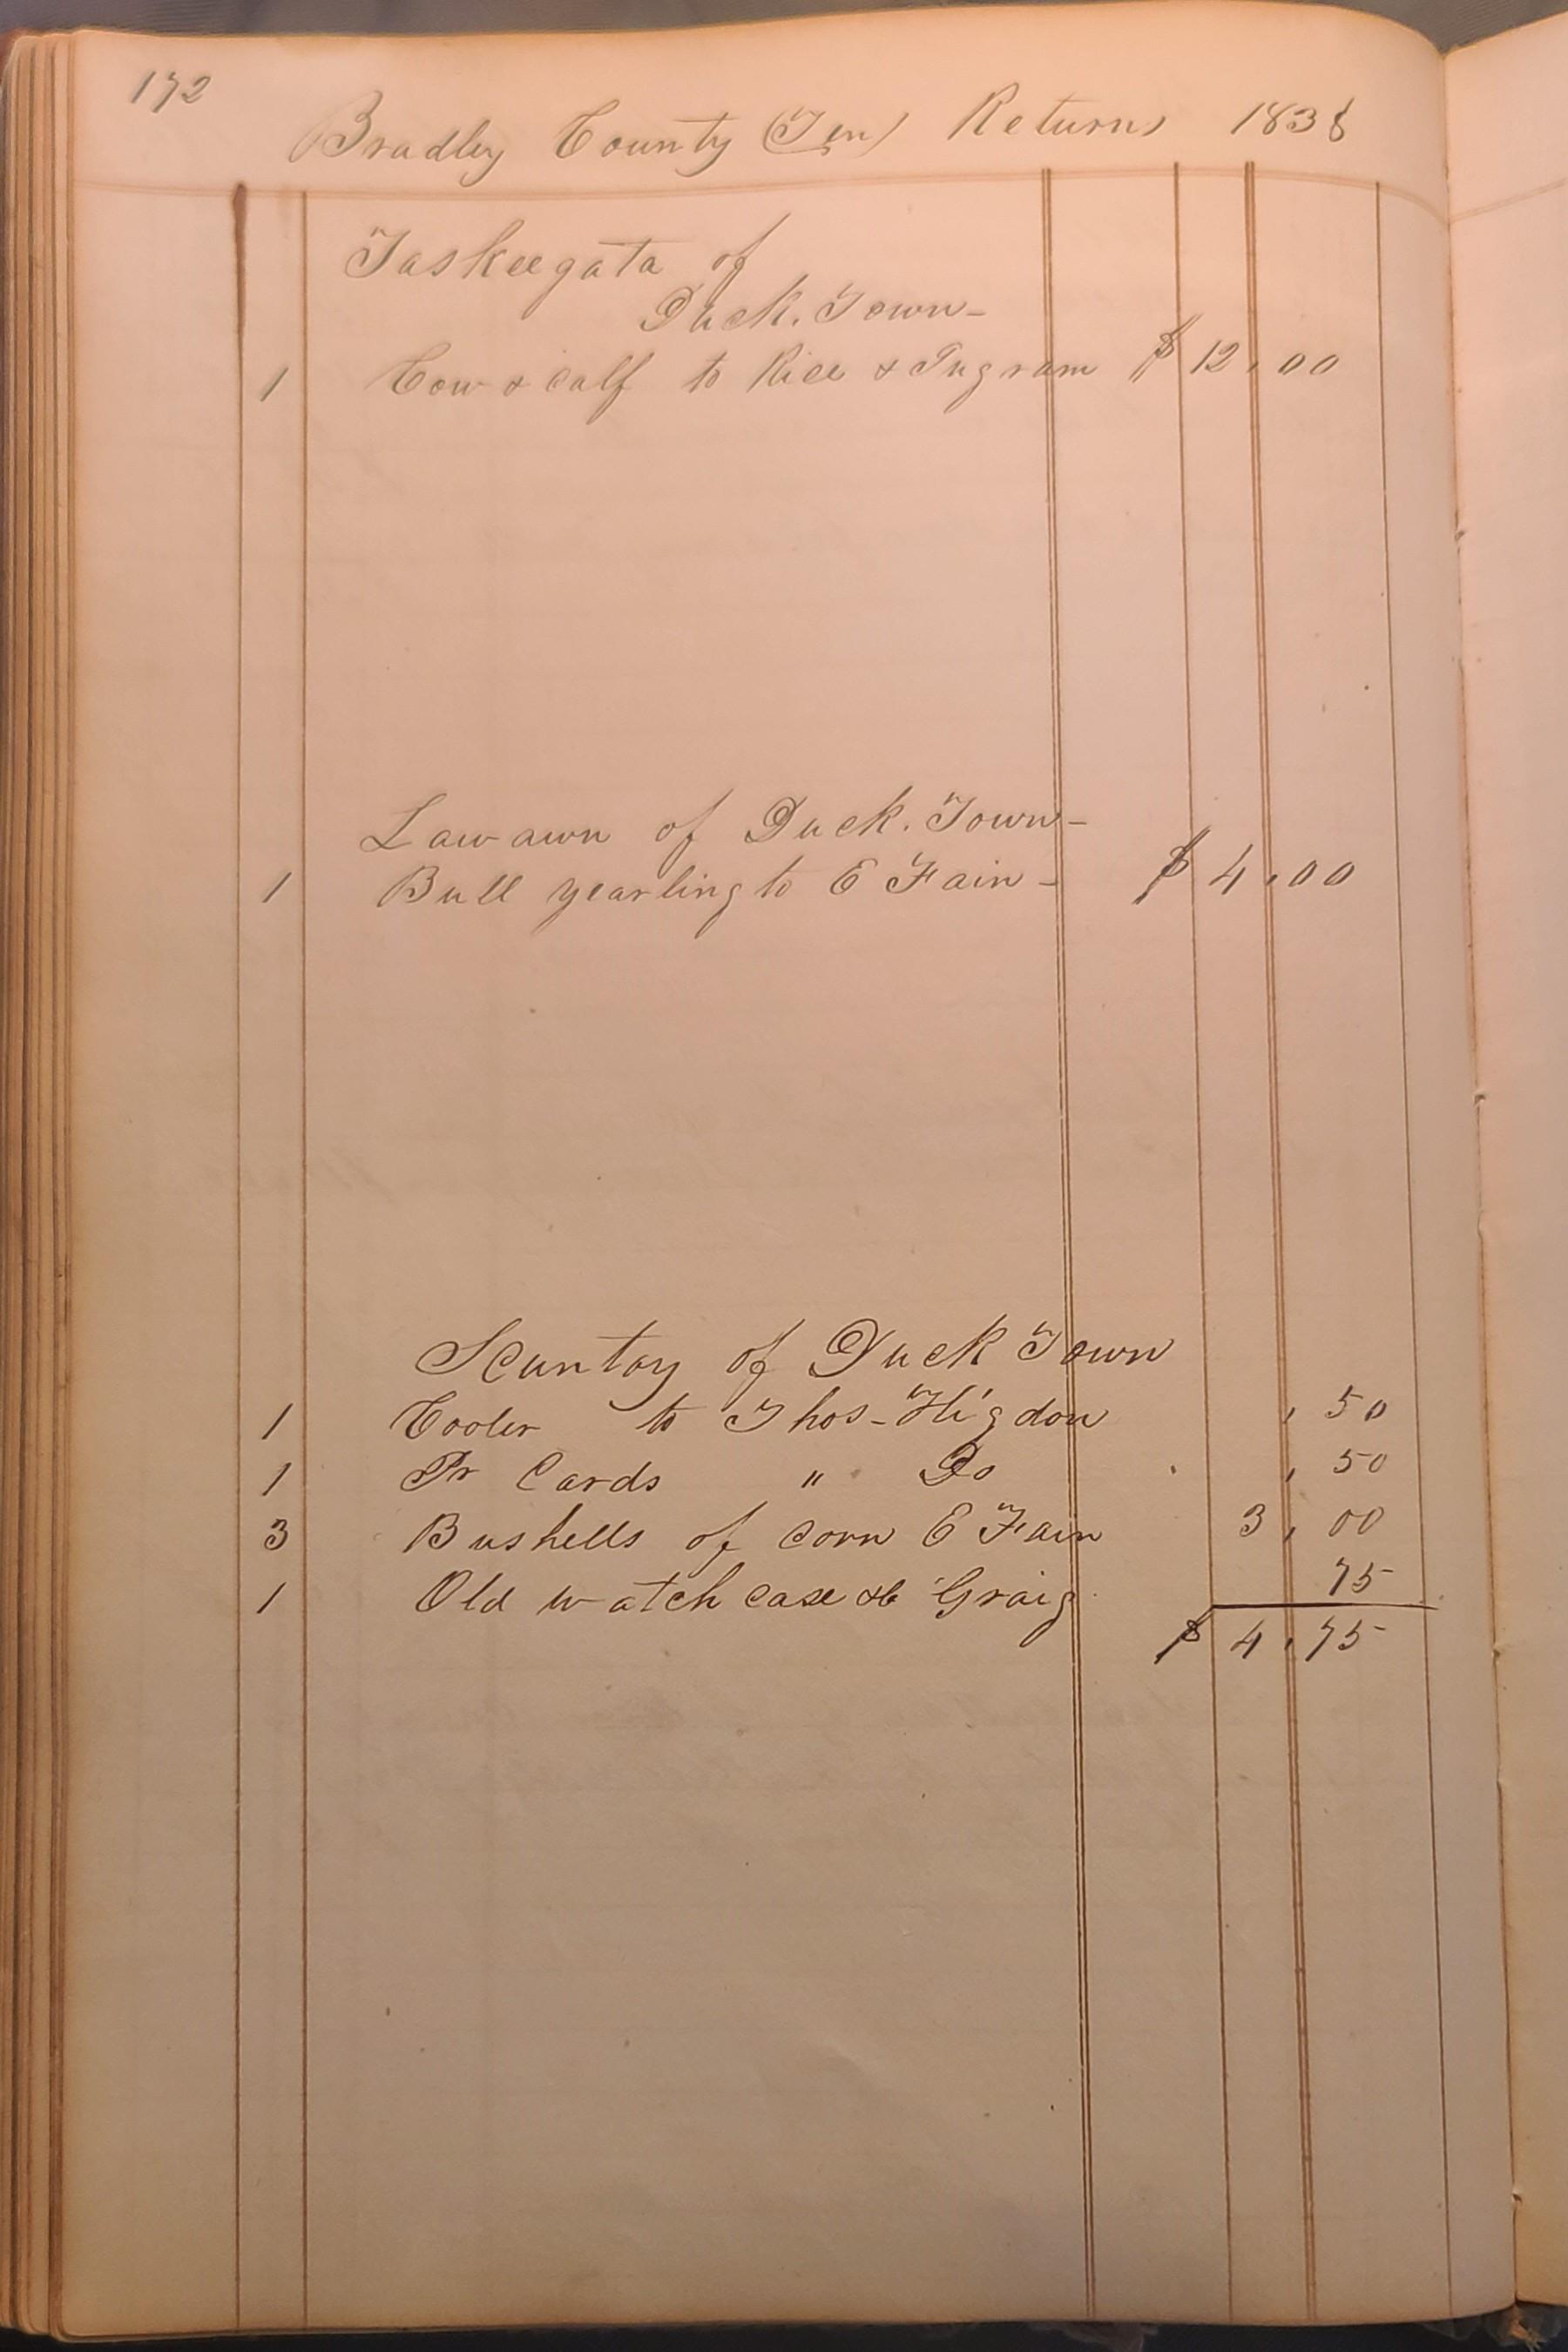 172
Bradley County (Ten) Returns 1838
Taskeegata of
Duck. Town-
1 Cow & Calf to Rice & Ingram $ 12,00
Lawawn of Duck. Town-
1 Bull yearling to E Fain- $ 4,00
Scuntoy of Duck Town
1 Cooler to Thos- Higdon , 50
1 Pr Cards " Do , 50
3 Bushells of Corn E Fain 3, 00
1 Old watch case &c Graig 75
$ 4,75